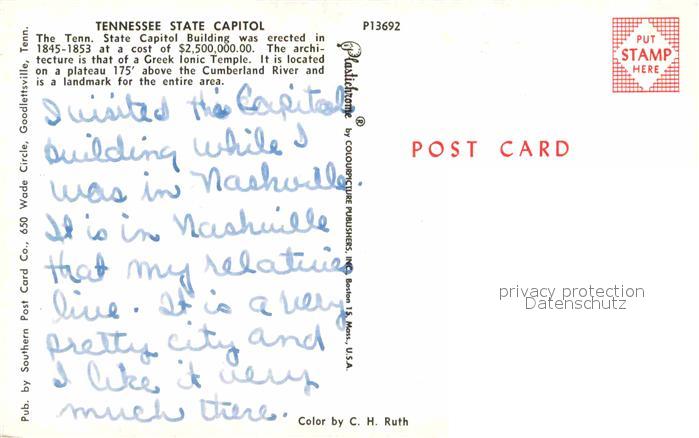 TENNESSEE STATE CAPITOL
The Tenn. State Capitol Building was erected in
1845-1853 at a cost of $2,500,000.00. The archi-
tecture is that of a Greek Ionic Temple. It is located
on a plateau 175' above the Cumberland River and
is a landmark for the entire area.
I visited the Capitol
building while I
was in Nashville.
It is in Nashville
that my relatives
live. It is a very
pretty city and
I like it very
much there.
Pub. by Southern Post Card Co., 650 Wade Circle, Goodlettsville, Tenn.
P13692
Plastichrome ® by COLOURPICTURE PUBLISHERS, INC., Boston 15, Mass., U.S.A.
Color by C. H. Ruth
PUT
STAMP
HERE
POST CARD
privacy protection
Datenschutz